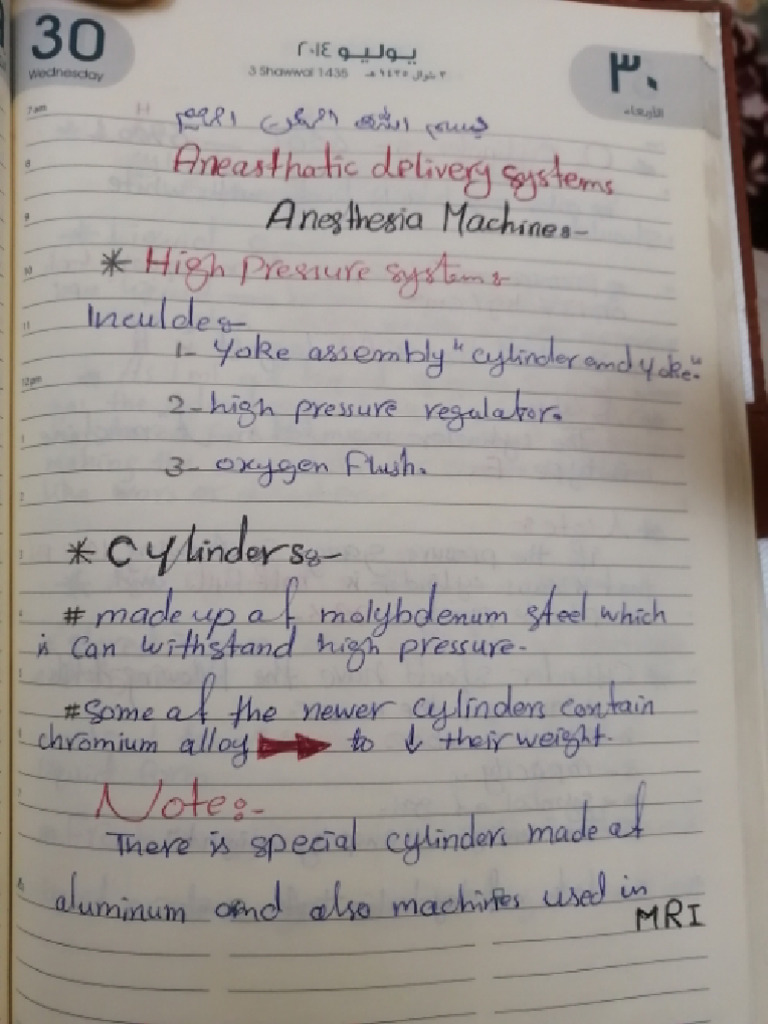 30
Wednesday
يوليو ٢٠١٤
3 Shawwal 1435 ٣ شوال ١٤٣٥ هـ
٣٠
الأربعاء
بسم الله الرحمن الرحيم
Aneasthatic delivery systems
Anesthesia Machine:-
* High Pressure system:-
Inculde:-
1- Yoke assembly "cylinder and yoke".
2- high pressure regulator.
3- oxygen flush.
* Cylinders:-
# made up of molybdenum steel which
is can withstand high pressure.
# some of the newer cylinders contain
chromium alloy ➡ to ↓ their weight.
Note:-
There is special cylinders made of
aluminum and also machines used in
MRI
7 am
8
9
10
11
12 pm
1
2
3
4
5
6
7
8